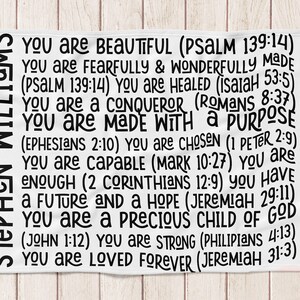 STEPHEN WILLIAMS
YOU ARE BEAUTIFUL (PSALM 139:14)
YOU ARE FEARFULLY & WONDERFULLY MADE
(PSALM 139:14) YOU ARE HEALED (ISAIAH 53:5)
YOU ARE A CONQUEROR (ROMANS 8:37)
YOU ARE MADE WITH A PURPOSE
(EPHESIANS 2:10) YOU ARE CHOSEN (1 PETER 2:9)
YOU ARE CAPABLE (MARK 10:27) YOU ARE
ENOUGH (2 CORINTHIANS 12:9) YOU HAVE
A FUTURE AND A HOPE (JEREMIAH 29:11)
YOU ARE A PRECIOUS CHILD OF GOD
(JOHN 1:12) YOU ARE STRONG (PHILIPIANS 4:13)
YOU ARE LOVED FOREVER (JEREMIAH 31:3)